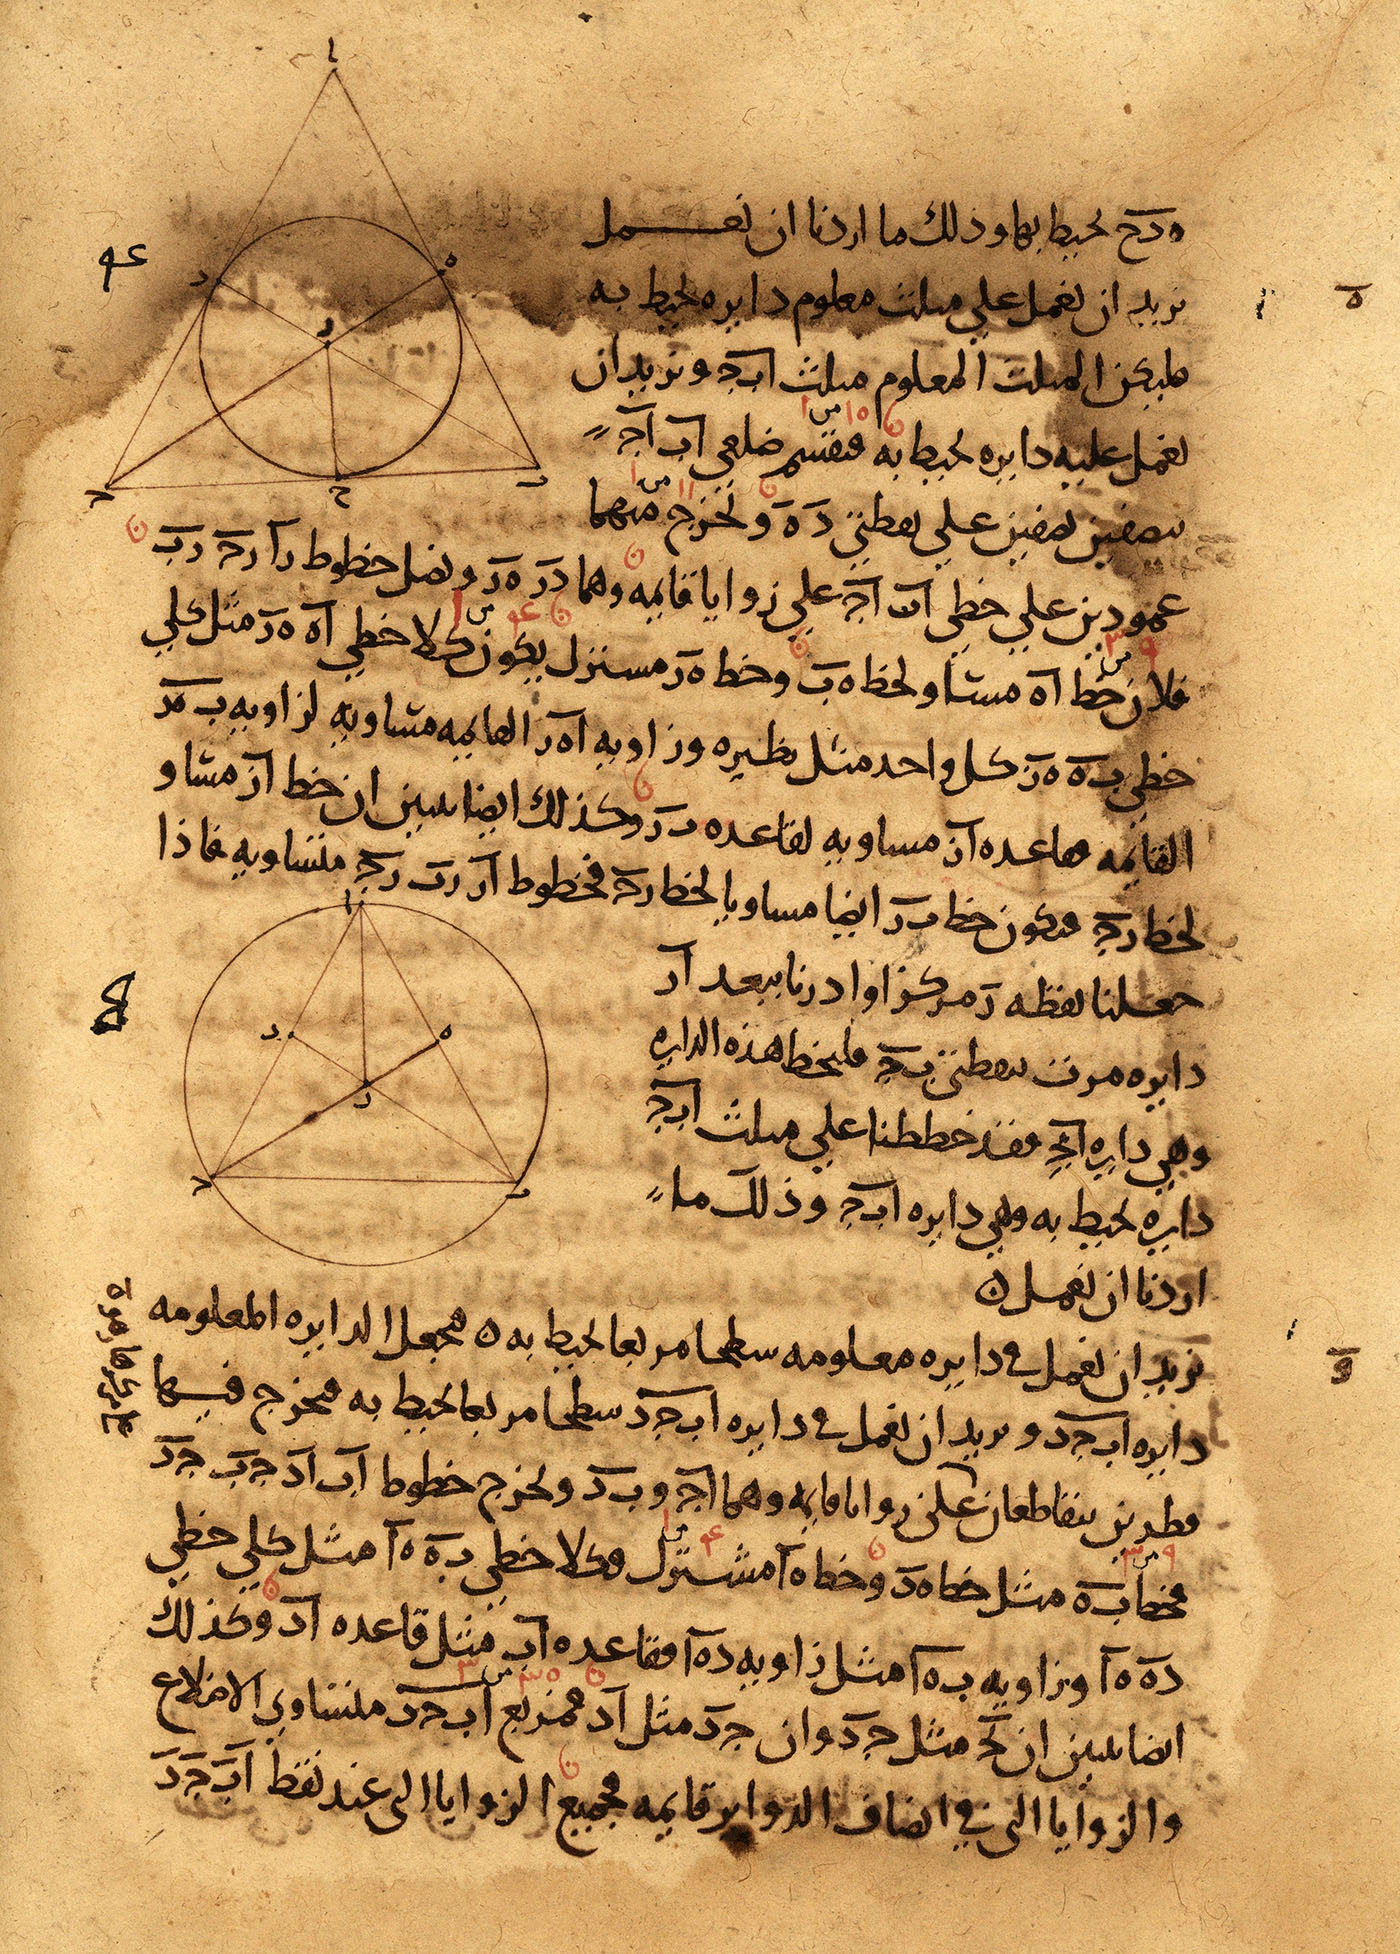 ه د ح يحيط بها وذلك ما اردنا ان نعمل
نريد ان نعمل علي مثلث معلوم دايره تحيط به
فليكن المثلث المعلوم مثلث اب ج ونريد ان
نعمل عليه دايره تحيط به فنقسم ضلعي اب اج
بنصفين نصفين علي نقطتي د ه ونخرج منهما
عمودين علي خطي اب اج علي زوايا قايمه وهما در ه ر ونصل خطوط را رج رب
فلان خط اه مساو لخط ه ب وخط ه ر مشترك يكون كلا خطي اه ه ر مثل كلي
خطي ب ه ه ر كل واحد مثل نظيره وزاويه اه ر القايمه مساويه لزاويه ب ه ر
القايمه فقاعده ار مساويه لقاعده ب ر وكذلك ايضا نبين ان خط ار مساو
لخط رج فيكون خط ب ر ايضا مساويا لخط رج فخطوط ار رب رج متساويه فاذا
جعلنا نقطه ر مركزا وادرنا ببعد ار
دايره مرت بنقطتي ب ج فليخط هذه الدايره
وهي دايره اب ج فقد خططنا علي مثلث اب ج
دايره تحيط به وهي دايره اب ج وذلك ما
اردنا ان نعمل ن
نريد ان نعمل في دايره معلومه سطحا مربعا تحيط به ن فنجعل الدايره المعلومه
دايره اب ج د ونريد ان نعمل في دايره اب ج د سطحا مربعا تحيط به فنخرج فيها
قطرين يتقاطعان علي زوايا قايمه وهما اج و ب د ونخرج خطوط اب اد ج ب ج د
فخط ب ه مثل خط ه د وخط ه ا مشترك وكلا خطي ب ه ه ا مثل كلي خطي
د ه ه ا وزاويه ب ه ا مثل زاويه د ه ا فقاعده اب مثل قاعده اد وكذلك
ايضا نبين ان ب ج مثل ج د وان ج د مثل اد فمربع اب ج د متساوي الاضلاع
والزوايا التي في انصاف الدواير قايمه فجميع الزوايا التي عند نقط اب ج د